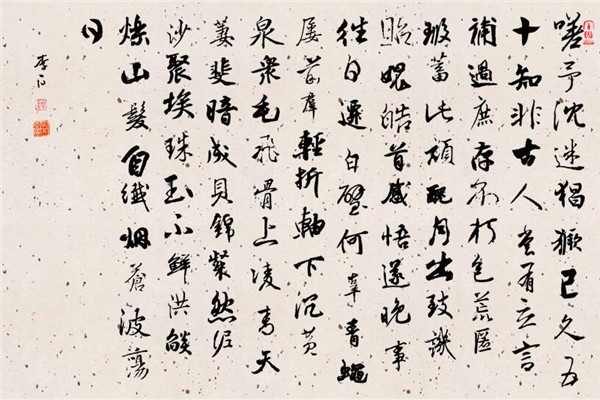 嗟予沈迷猖獗已久五
十知非古人嘗有立言
補過庶存不朽包荒匿
瑕蓄此頑醜月出致譏
貽愧皓首感悟遂晚事
往日遷白璧何辜青蠅
屢前群輕折軸下沉黃
泉衆毛飛骨上凌青天
萋斐暗成貝錦粲然泥
沙聚埃珠玉不鮮洪燄
爍山髮自纖烟蒼波蕩
日
李白